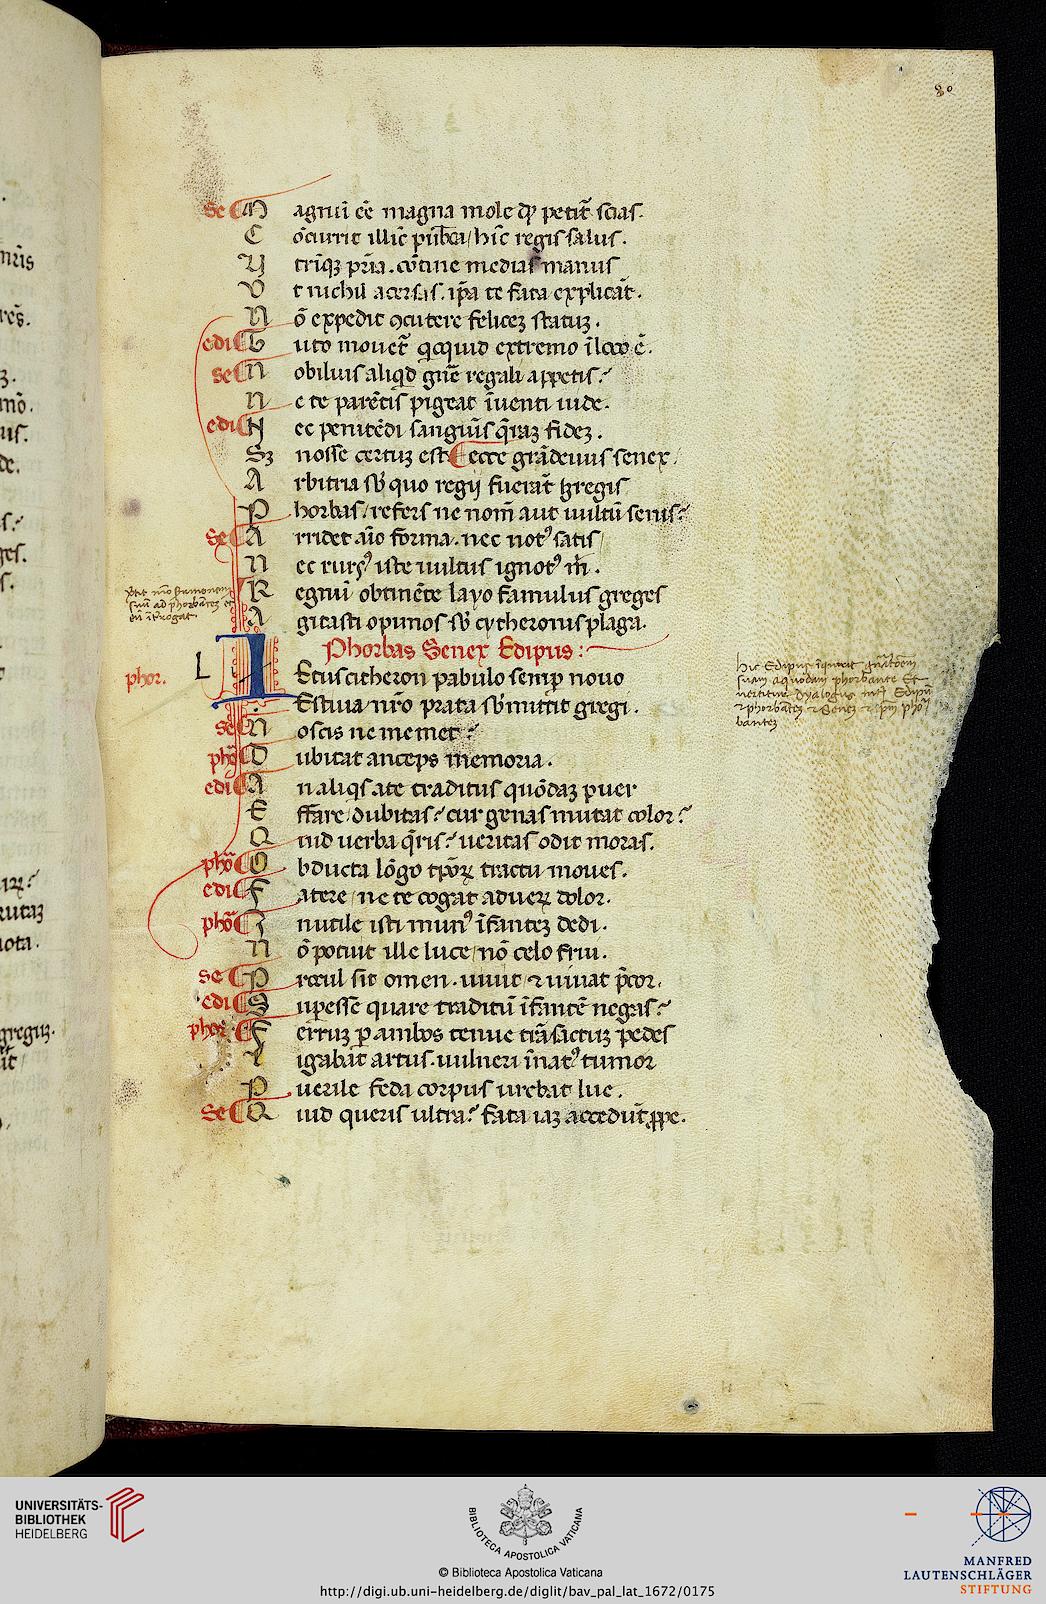 80
se M agnū eē magna mole qđ petit̄ scias.
C ōcurrit illīc pub̄ca / hīc regis salus.
U trīqꝫ pr̄ia. cōtine medias manus
U t nichil acersas. ip̄a te fata explicāt.
N ō expedit ꝯcutere feliceꝫ statuꝫ.
edi T uto mouet̄ qͥcquid extremo ī loco ē.
se N obilius aliqͥd gn̄e regali appetis?
N e te parētis pigeat īuenti uide.
edi N ec penitēdi sanguīs q̄raꝫ fideꝫ.
Sꝫ nosse certuꝫ est ecce grādeuus senex
A rbitria sb̄ quo regij fuerāt gregis
P horbas / refers ne nom̄ aut uultū senis?
se A rridet aīo forma. nec notꝰ satis
N ec rursꝰ iste uultus ignotꝰ m̄.
R egnū obtinēte layo famulus greges
A gitasti opimos sb̄ cytheronis plaga.
Phorbas Senex Edipus:
phor. L Etus citheron pabulo semp̄ nouo
Estiua nr̄o prata sb̄mittit gregi.
se N oscis ne memet?
phō D ubitat anceps memoria.
edi A n aliqͥs a te traditus quōdaꝫ puer
E ffare / dubitas? cur genas mutat color?
Q uid uerba q̄ris? ueritas odit moras.
phō O bducta lōgo tp̄oꝝ tractu moues.
edi F atere / ne te cogat ad ueꝝ dolor.
phō I nutile isti munꝰ īfanteꝫ dedi.
N ō potuit ille luce / nō celo frui.
se P rocul sit omen. uiuit ⁊ uiuat p̄cor.
edi S upesse quare traditū īfantē negas?
phor. F erruꝫ ꝑ ambos tenue trāsactuꝫ pedes
L igabat artus. uulneri īnatꝰ tumor
P uerile feda corpus urebat lue.
se Q uid queris ultra? fata iaꝫ accedūt ꝓpe.
UNIVERSITÄTS-
BIBLIOTHEK
HEIDELBERG
BIBLIOTECA APOSTOLICA VATICANA
© Biblioteca Apostolica Vaticana
http://digi.ub.uni-heidelberg.de/diglit/bav_pal_lat_1672/0175
MANFRED
LAUTENSCHLÄGER
STIFTUNG